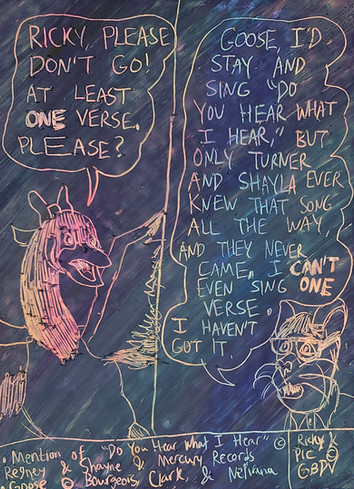 RICKY, PLEASE
DON'T GO!
AT LEAST
ONE VERSE.
PLEASE?
GOOSE, I'D
STAY AND
SING "DO
YOU HEAR WHAT
I HEAR," BUT
ONLY TURNER
AND SHAYLA EVER
KNEW THAT SONG
ALL THE WAY,
AND THEY NEVER
CAME. I CAN'T
EVEN SING ONE
VERSE.
I HAVEN'T
GOT IT.
• Mention of "Do You Hear What I Hear" ©
Regney & Shayne & Mercury Records
• Goose © Bourgeois, Clark, & Nelvana
Ricky &
Pic ©
GBDV